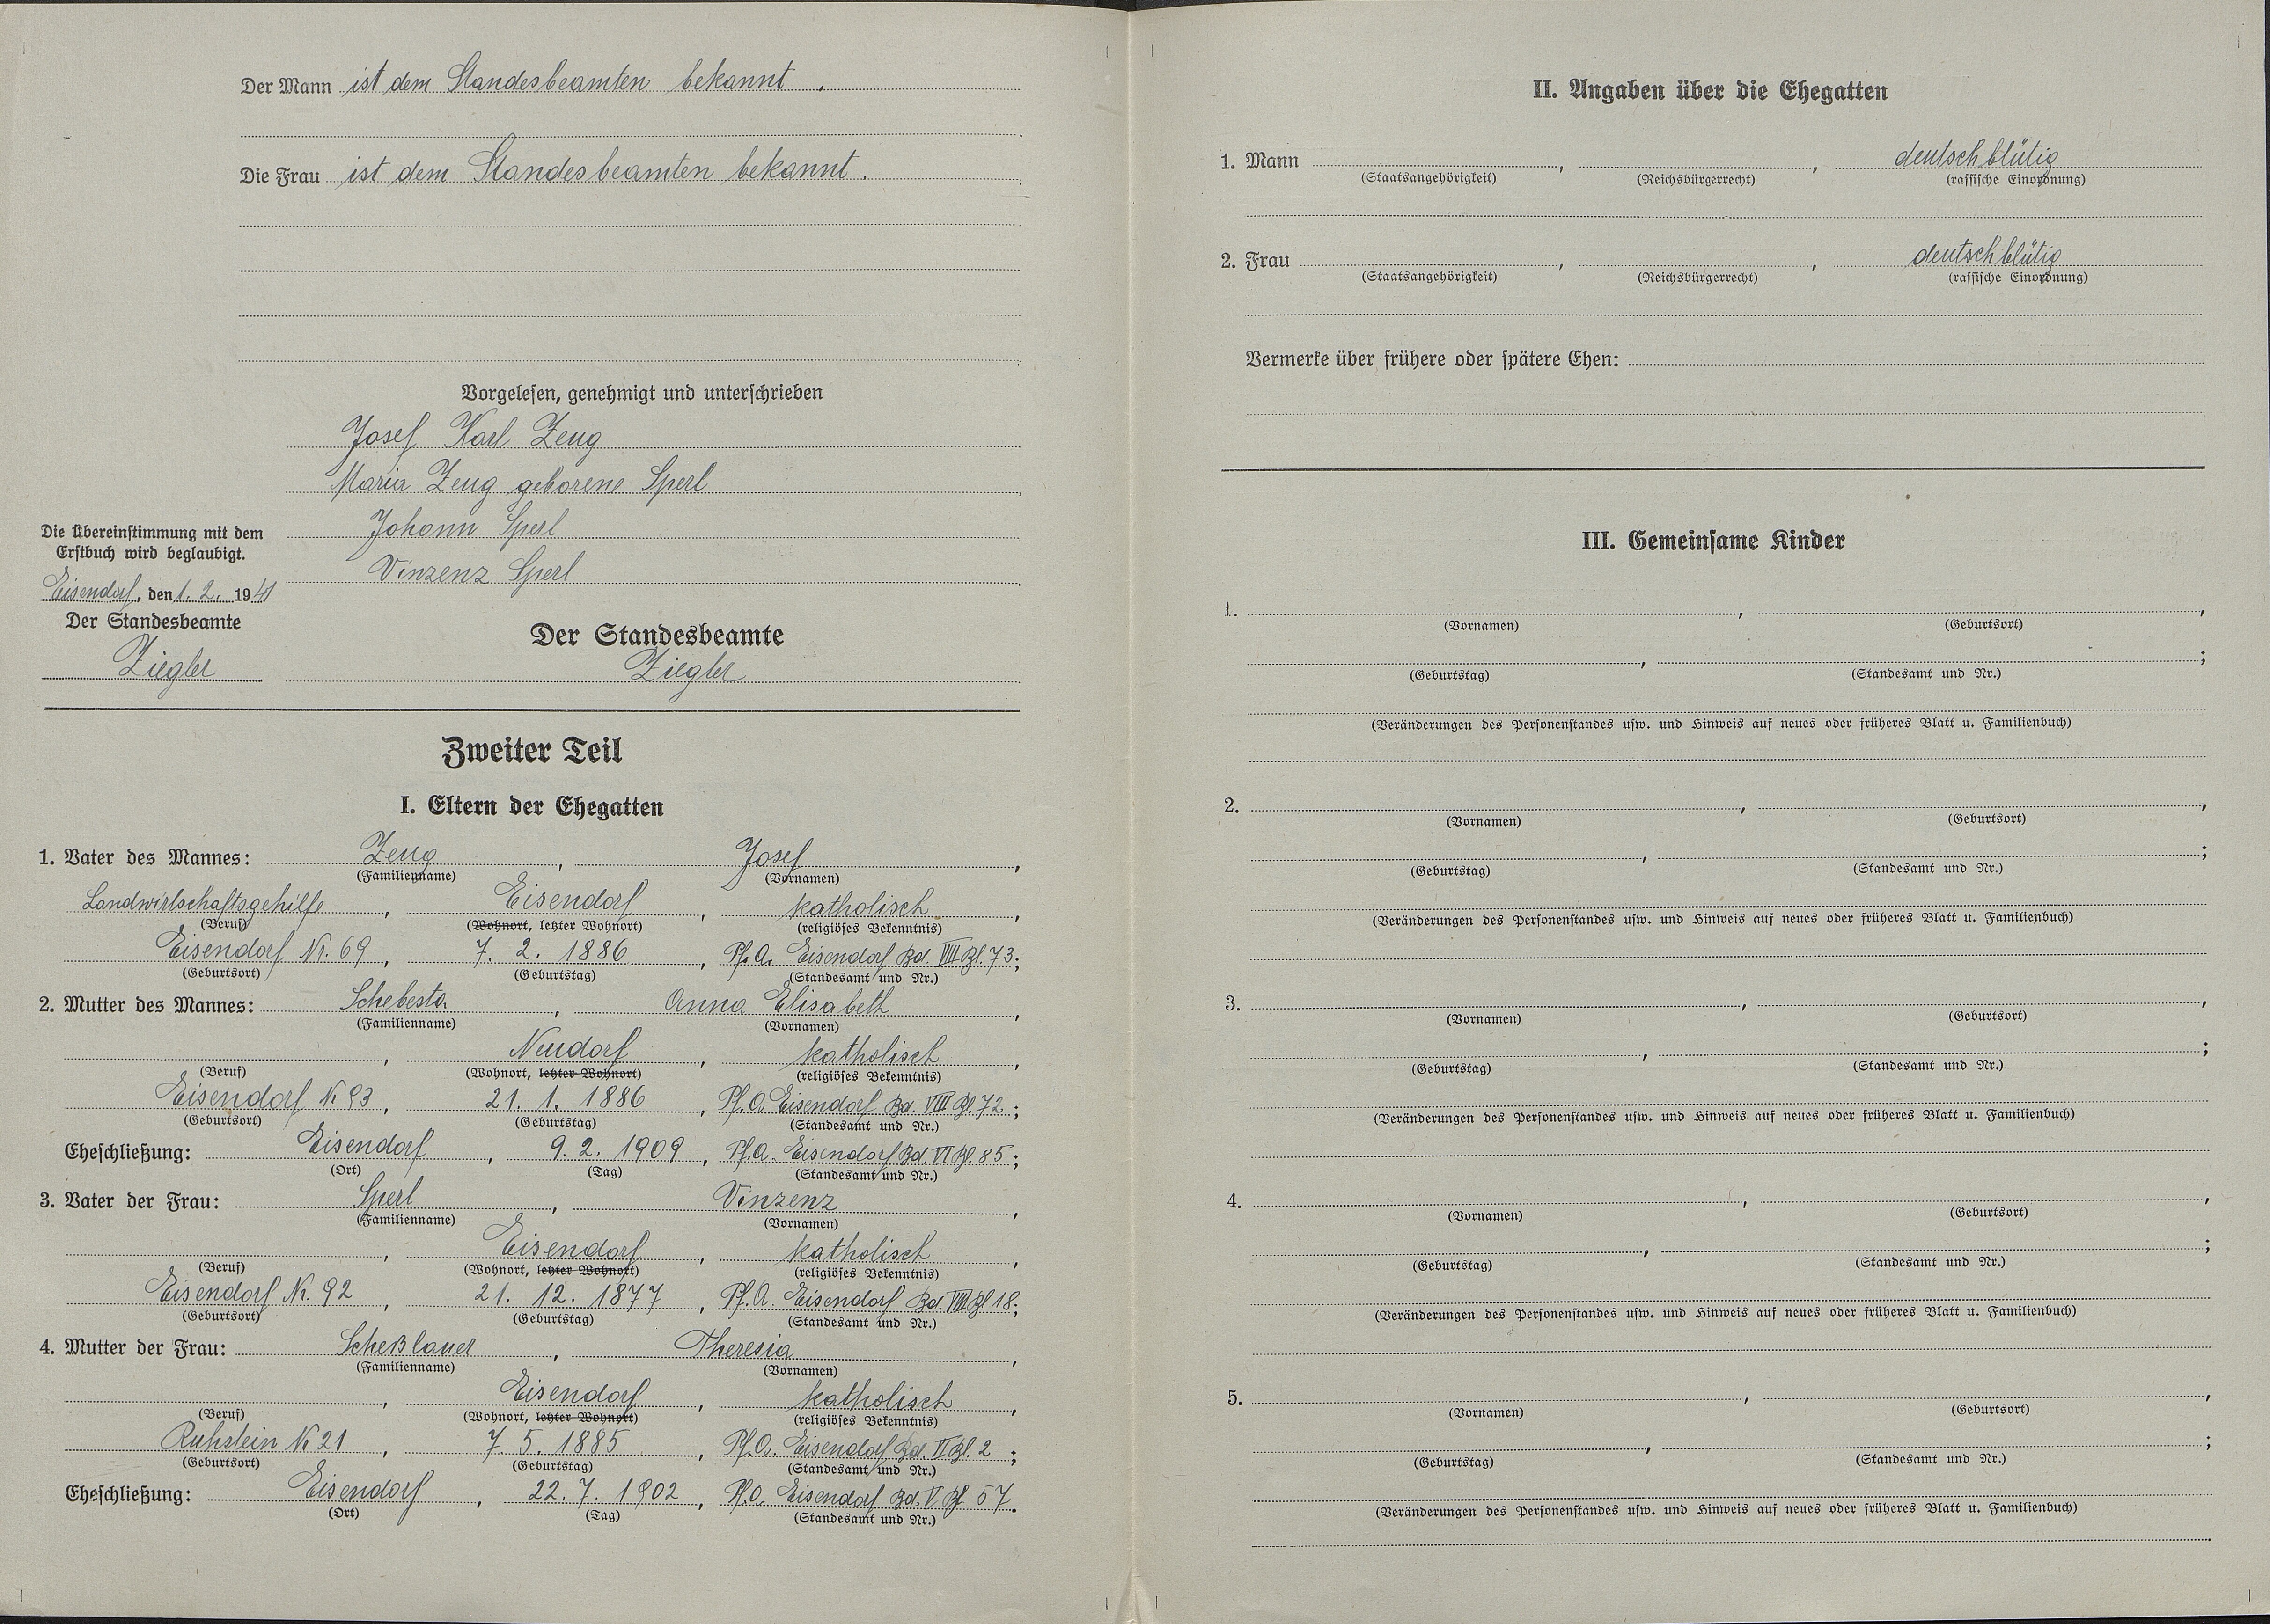 Der Mann ist dem Standesbeamten bekannt.
Die Frau ist dem Standesbeamten bekannt.
Vorgelesen, genehmigt und unterschrieben
Josef Karl Zeug
Maria Zeug geborene Sperl
Johann Sperl
Vinzenz Sperl
Die Übereinstimmung mit dem
Erstbuch wird beglaubigt.
Eisendorf, den 1. 2. 1941
Der Standesbeamte
Ziegler
Der Standesbeamte
Ziegler
Zweiter Teil
I. Eltern der Ehegatten
1. Vater des Mannes: Zeug, Josef,
(Familienname) (Vornamen)
Landwirtschaftsgehilfe, Eisendorf, katholisch,
(Beruf) (Wohnort, letzter Wohnort) (religiöses Bekenntnis)
Eisendorf Nr. 69, 7. 2. 1886, Pf. A. Eisendorf Bd. VIII Bl. 73;
(Geburtsort) (Geburtstag) (Standesamt und Nr.)
2. Mutter des Mannes: Schebesta, Anna Elisabeth,
(Familienname) (Vornamen)
, Neudorf, katholisch,
(Beruf) (Wohnort, letzter Wohnort) (religiöses Bekenntnis)
Eisendorf N. 93, 21. 1. 1886, Pf. A. Eisendorf Bd. VIII Bl. 72;
(Geburtsort) (Geburtstag) (Standesamt und Nr.)
Eheschließung: Eisendorf, 9. 2. 1909, Pf. A. Eisendorf Bd. VI Bl. 85;
(Ort) (Tag) (Standesamt und Nr.)
3. Vater der Frau: Sperl, Vinzenz,
(Familienname) (Vornamen)
, Eisendorf, katholisch,
(Beruf) (Wohnort, letzter Wohnort) (religiöses Bekenntnis)
Eisendorf Nr. 92, 21. 12. 1877, Pf. A. Eisendorf Bd. VIII Bl 18;
(Geburtsort) (Geburtstag) (Standesamt und Nr.)
4. Mutter der Frau: Scheßlauer, Theresia,
(Familienname) (Vornamen)
, Eisendorf, katholisch,
(Beruf) (Wohnort, letzter Wohnort) (religiöses Bekenntnis)
Ruhstein N 21, 7. 5. 1885, Pf. A. Eisendorf Bd. II Bl. 2;
(Geburtsort) (Geburtstag) (Standesamt und Nr.)
Eheschließung: Eisendorf, 22. 7. 1902, Pf. A. Eisendorf Bd. V Bl 57.
(Ort) (Tag) (Standesamt und Nr.)
II. Angaben über die Ehegatten
1. Mann , , deutschblütig
(Staatsangehörigkeit) (Reichsbürgerrecht) (rassische Einordnung)
2. Frau , , deutschblütig
(Staatsangehörigkeit) (Reichsbürgerrecht) (rassische Einordnung)
Vermerke über frühere oder spätere Ehen:
III. Gemeinsame Kinder
1. , ,
(Vornamen) (Geburtsort)
, ;
(Geburtstag) (Standesamt und Nr.)
(Veränderungen des Personenstandes usw. und Hinweis auf neues oder früheres Blatt u. Familienbuch)
2. , ,
(Vornamen) (Geburtsort)
, ;
(Geburtstag) (Standesamt und Nr.)
(Veränderungen des Personenstandes usw. und Hinweis auf neues oder früheres Blatt u. Familienbuch)
3. , ,
(Vornamen) (Geburtsort)
, ;
(Geburtstag) (Standesamt und Nr.)
(Veränderungen des Personenstandes usw. und Hinweis auf neues oder früheres Blatt u. Familienbuch)
4. , ,
(Vornamen) (Geburtsort)
, ;
(Geburtstag) (Standesamt und Nr.)
(Veränderungen des Personenstandes usw. und Hinweis auf neues oder früheres Blatt u. Familienbuch)
5. , ,
(Vornamen) (Geburtsort)
, ;
(Geburtstag) (Standesamt und Nr.)
(Veränderungen des Personenstandes usw. und Hinweis auf neues oder früheres Blatt u. Familienbuch)